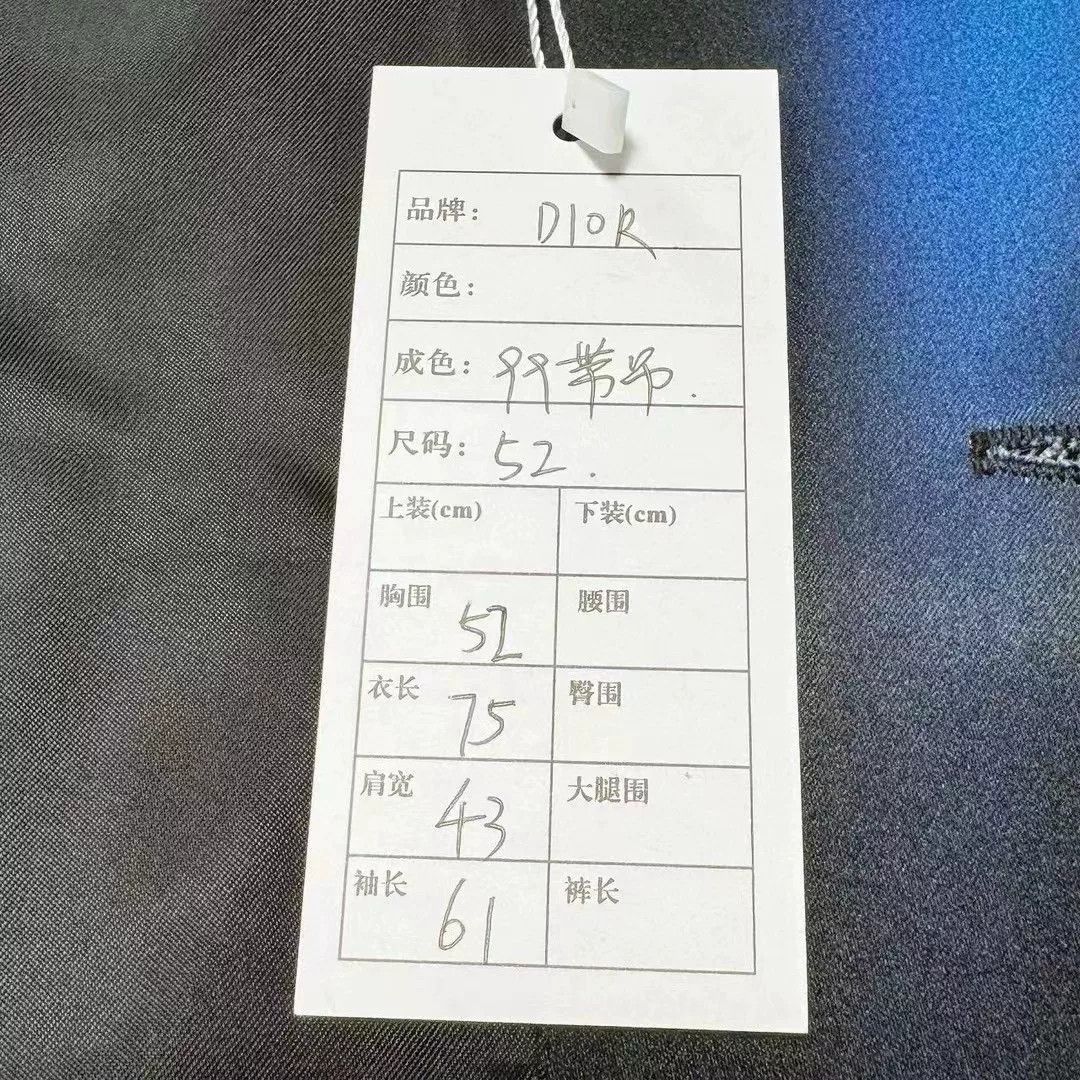 品牌： DIOR
颜色：
成色： 99带吊.
尺码： 52.
上装(cm) 下装(cm)
胸围 52 腰围
衣长 75 臀围
肩宽 43 大腿围
袖长 61 裤长